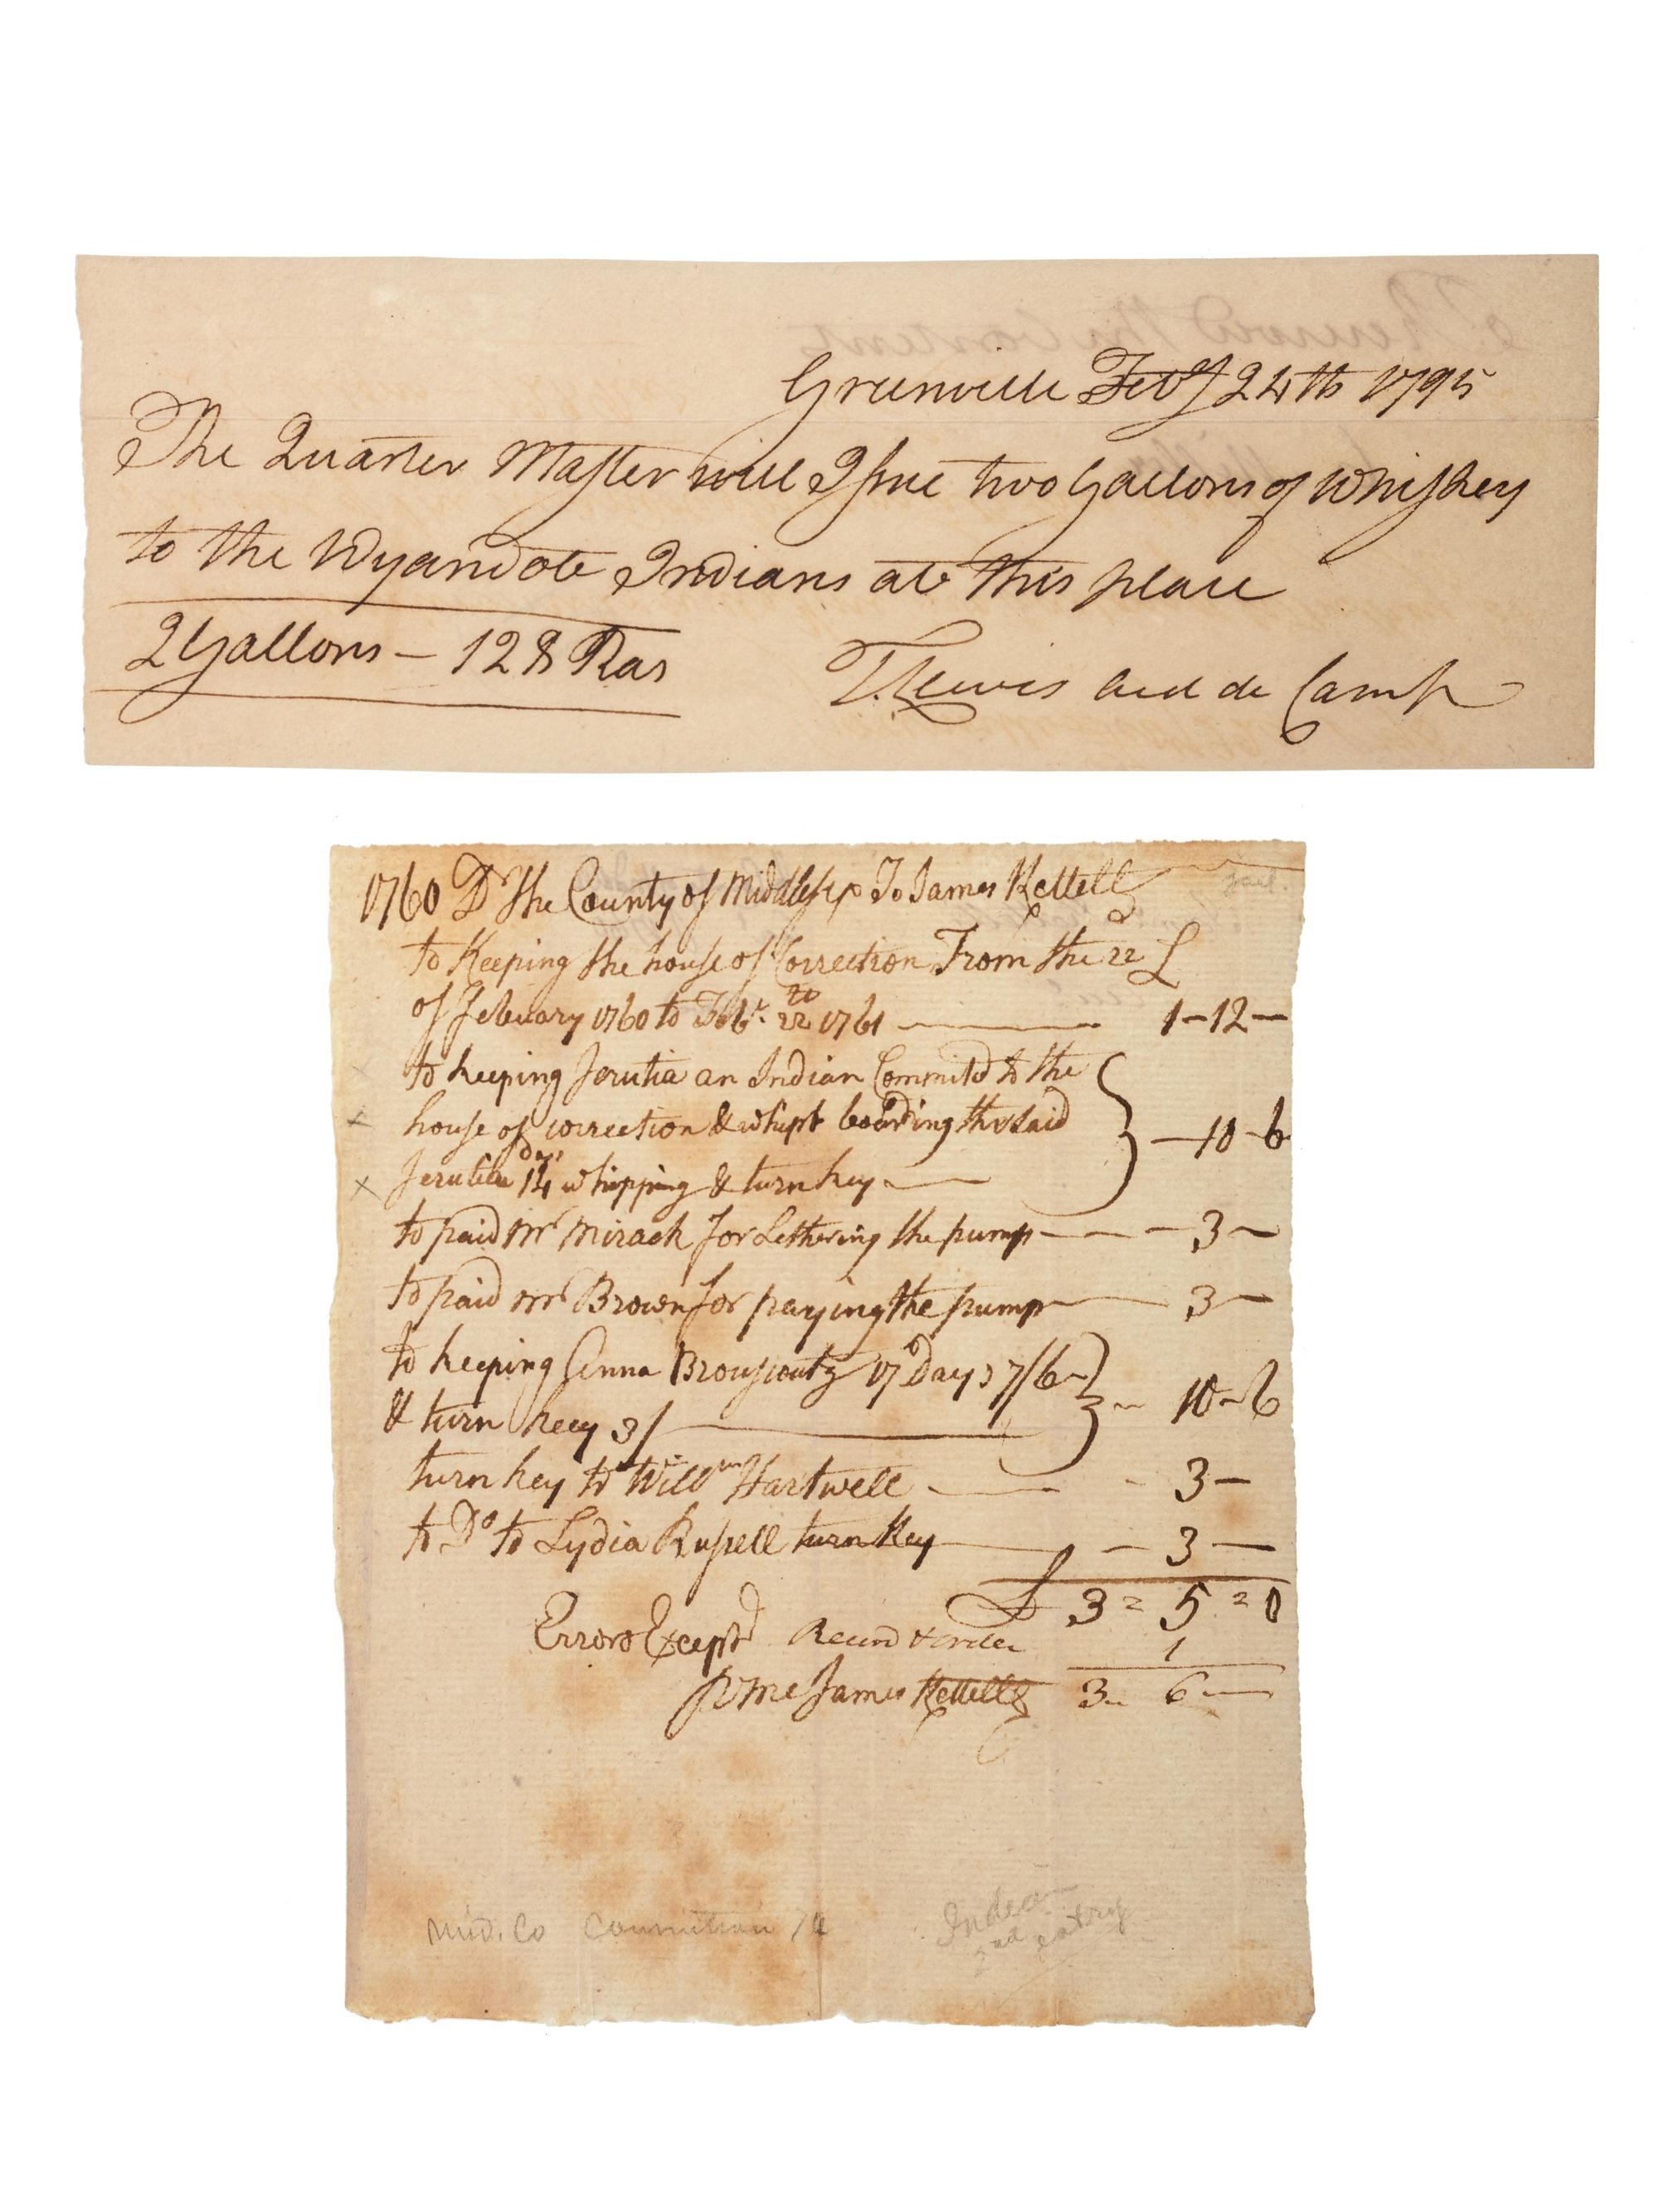 Greenville Feby 24th 1795
The Quarter Master will Issue two Gallons of Whiskey
to the Wyandote Indians at this place
2 Gallons – 128 Ras
T. Lewis aid de Camp
1760 Dr The County of Middlesex To James Kettell
Jail.
to Keeping the house of Correction From the 22 £
of Febuary 1760 to Febr. 22 1761 — 1–12–
to keeping Jerutia an Indian Commitd to the
house of correction & whipt boarding the said — 10–6
Jerutia 14 days whipping & turnkey
to paid Mr Mirack for Lethering the pump — 3 –
to paid Mr Brown for paying the pump — 3 –
to keeping Anna 17 Days 7/6
& turn keey 3/ — 10–6
turn key to Willm Hartwell — 3 –
to Do to Lydia Russell turn Key — 3 —
£ 3 = 5 = 0
Errors Exceptd Recind & order 1
Pr me James Kettell 3 – 6 —
Mid. Co
Indian
2nd entry